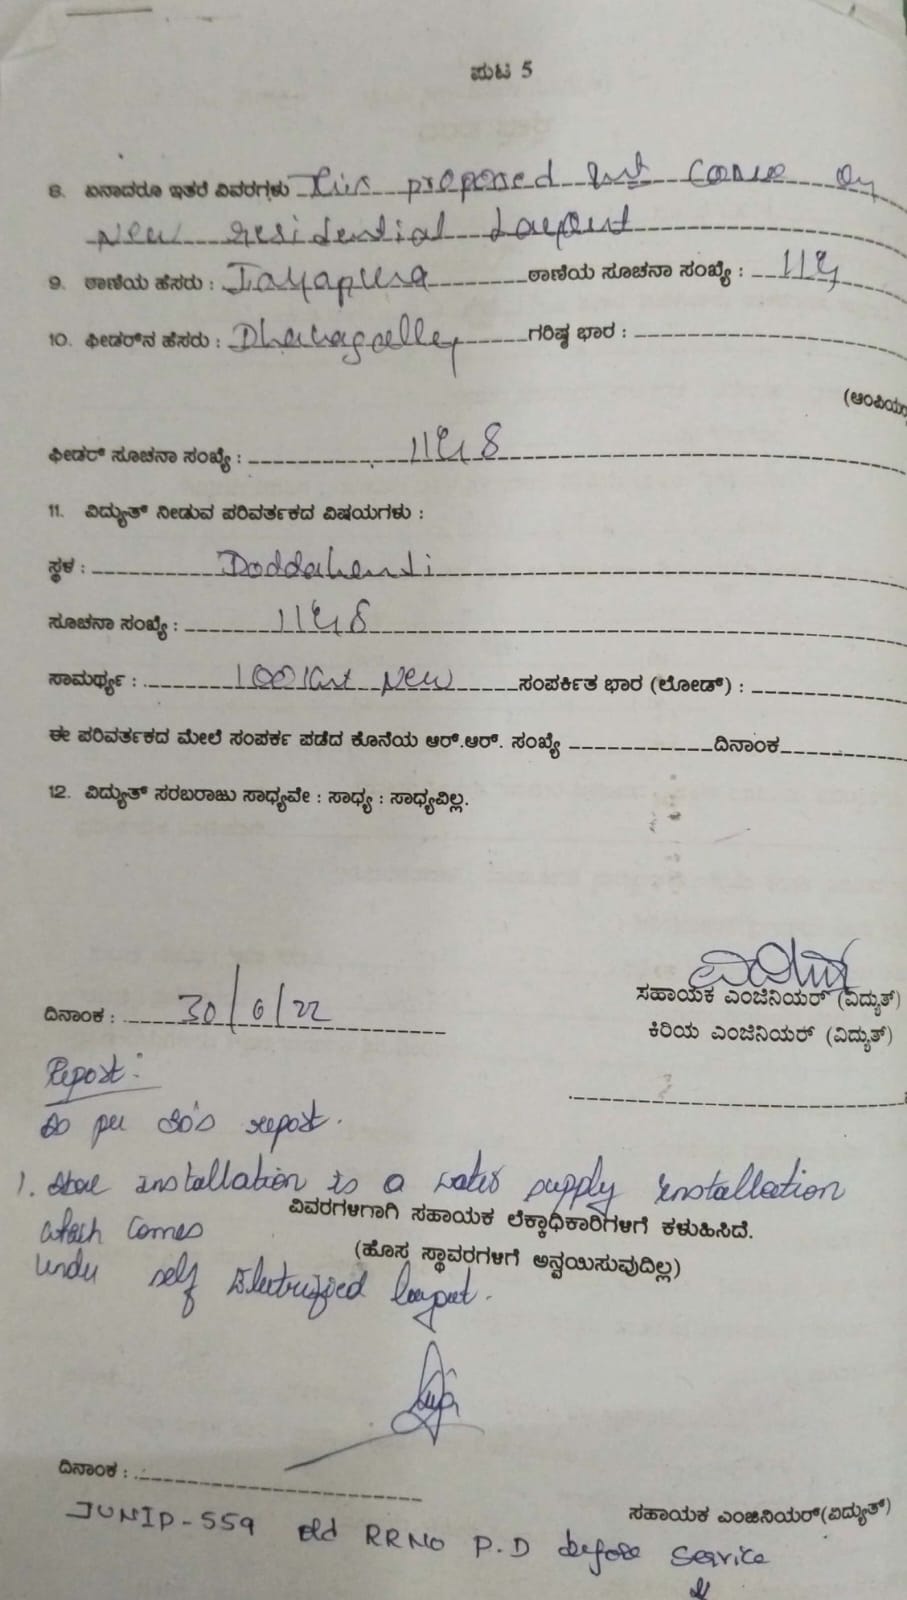 ಪುಟ 5
8. ಏನಾದರೂ ಇತರ ವಿವರಗಳು This proposed Come on
New residential Layout
9. ಠಾಣೆಯ ಹೆಸರು : Jayapura ಠಾಣೆಯ ಸೂಚನಾ ಸಂಖ್ಯೆ :
10. ಫೀಡರ್‌ನ ಹೆಸರು : ಗರಿಷ್ಠ ಭಾರ :
(ಆಂಪಿಯ
ಫೀಡರ್ ಸೂಚನಾ ಸಂಖ್ಯೆ :
11. ವಿದ್ಯುತ್ ನೀಡುವ ಪರಿವರ್ತಕದ ವಿಷಯಗಳು :
ಸ್ಥಳ :
ಸೂಚನಾ ಸಂಖ್ಯೆ :
ಸಾಮರ್ಥ್ಯ : New ಸಂಪರ್ಕಿತ ಭಾರ (ಲೋಡ್) :
ಈ ಪರಿವರ್ತಕದ ಮೇಲೆ ಸಂಪರ್ಕ ಪಡೆದ ಕೊನೆಯ ಆರ್.ಆರ್. ಸಂಖ್ಯೆ ದಿನಾಂಕ
12. ವಿದ್ಯುತ್ ಸರಬರಾಜು ಸಾಧ್ಯವೇ : ಸಾಧ್ಯ : ಸಾಧ್ಯವಿಲ್ಲ.
ಸಹಾಯಕ ಎಂಜಿನಿಯರ್ (ವಿದ್ಯುತ್)
ದಿನಾಂಕ : 30/6/22
ಕಿರಿಯ ಎಂಜಿನಿಯರ್ (ವಿದ್ಯುತ್)
Report :
As per SO's report.
1. installation is a water supply installation
ವಿವರಗಳಿಗಾಗಿ ಸಹಾಯಕ ಲೆಕ್ಕಾಧಿಕಾರಿಗಳಿಗೆ ಕಳುಹಿಸಿದೆ.
which comes
(ಹೊಸ ಸ್ಥಾವರಗಳಿಗೆ ಅನ್ವಯಿಸುವುದಿಲ್ಲ)
under self Electrified layout.
ದಿನಾಂಕ :
ಸಹಾಯಕ ಎಂಜಿನಿಯರ್(ವಿದ್ಯುತ್)
JUNIP-559 old RRNO P.D before service